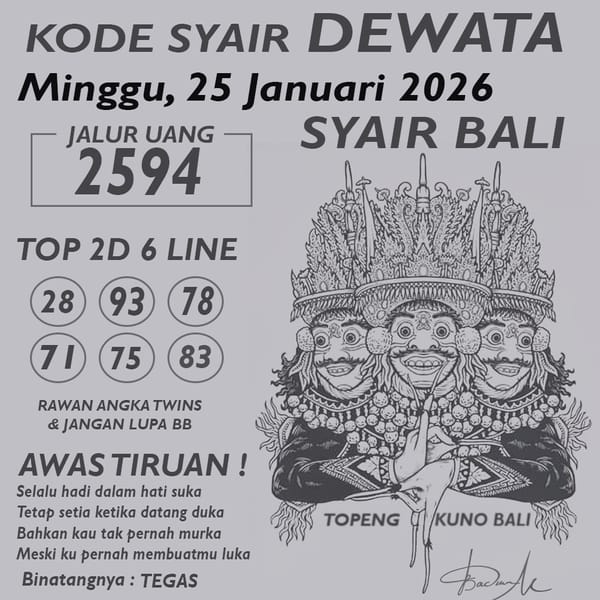 KODE SYAIR DEWATA
Minggu, 25 Januari 2026
SYAIR BALI
JALUR UANG
2594
TOP 2D 6 LINE
28 93 78
71 75 83
RAWAN ANGKA TWINS
& JANGAN LUPA BB
AWAS TIRUAN !
Selalu hadi dalam hati suka
Tetap setia ketika datang duka
Bahkan kau tak pernah murka
Meski ku pernah membuatmu luka
Binatangnya : TEGAS
TOPENG KUNO BALI